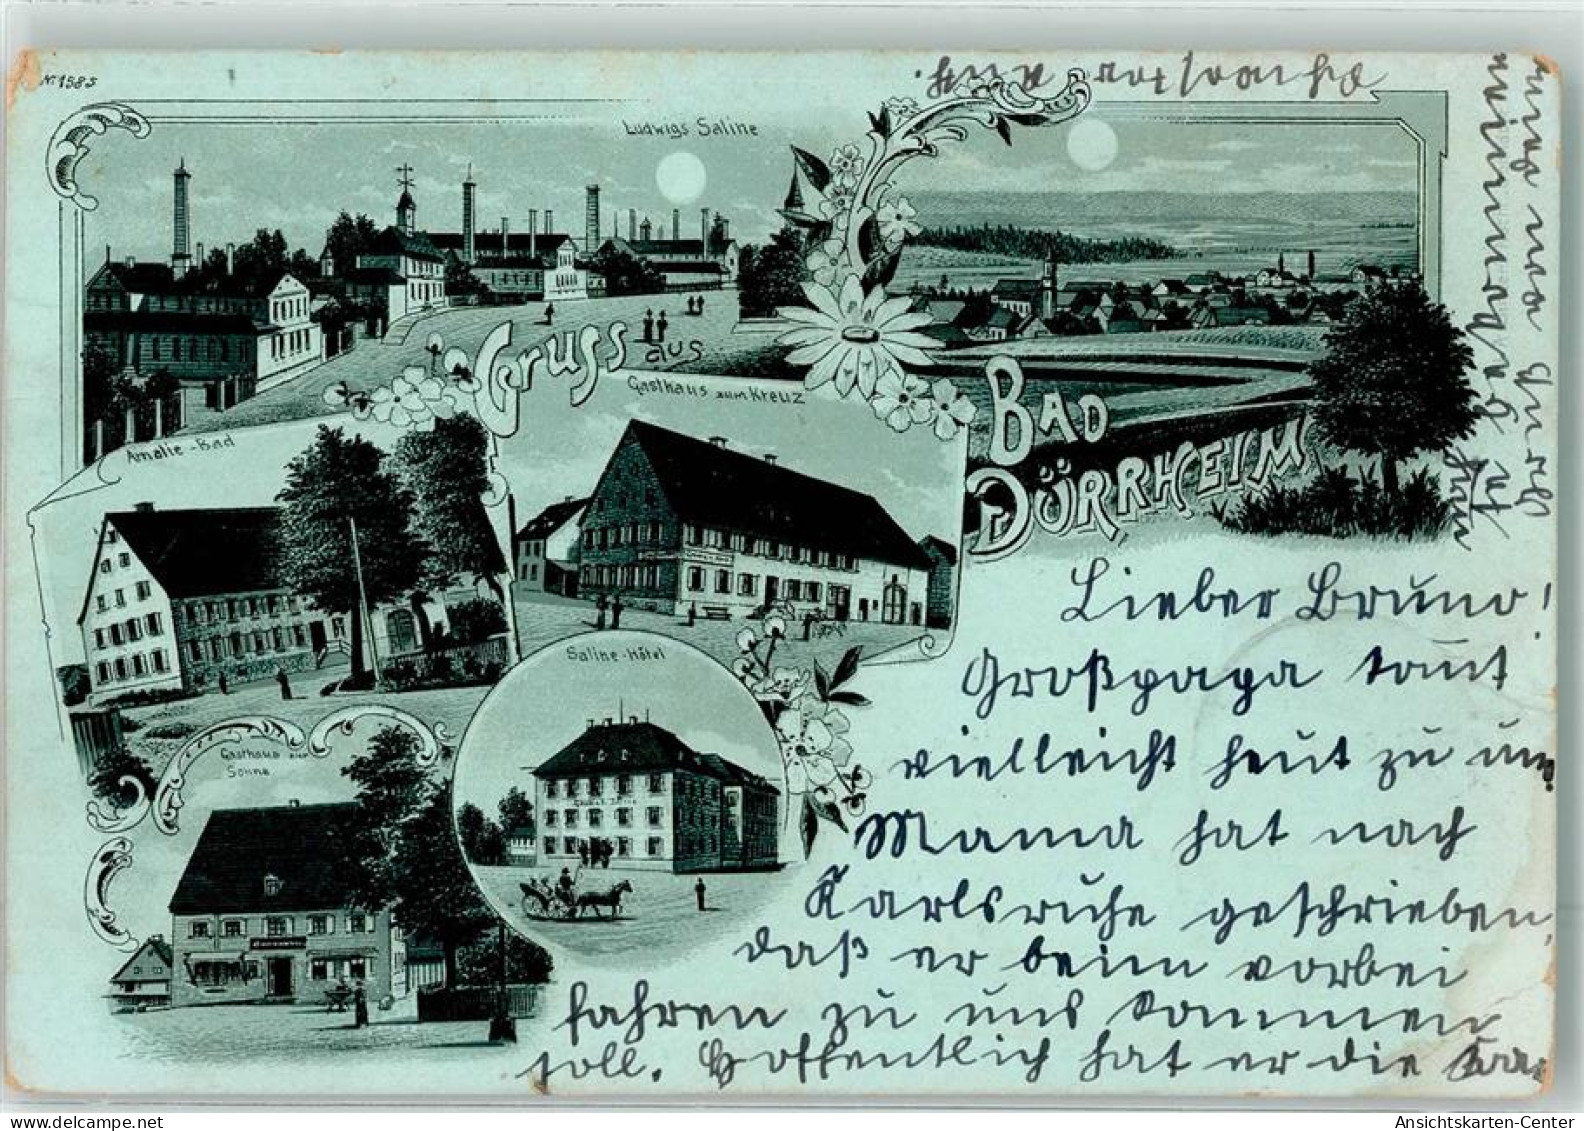 Nr. 1585
Ludwigs Saline
Gruss aus
Bad
Dürrheim
Gasthaus zum Kreuz
Amalie-Bad
Saline-Hôtel
Gasthaus zur
Sonne
Lieber Bruno!
Großpapa kommt
vielleicht heut zu uns
Mama hat nach
Karlsruhe geschrieben,
daß er beim vorbei
fahren zu uns kommen
soll. Hoffentlich hat er die
Ansichtskarten-Center